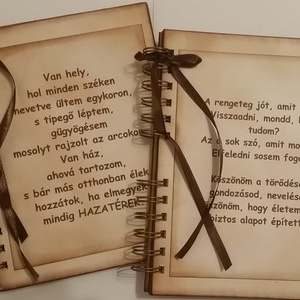 Van hely,
hol minden széken
nevetve ültem egykoron,
s tipegő léptem,
gügyögésem
mosolyt rajzolt az arcokon
Van ház,
ahová tartozom,
s bár más otthonban élek
hozzátok, ha elmegyek
mindig HAZATÉREK
A rengeteg jót, amit
Visszaadni, mondd, h
tudom?
Az a sok szó, amit mo
Elfeledni sosem fog
Köszönöm a törődés
gondozásod, nevelése
szönöm, hogy életem
biztos alapot építet